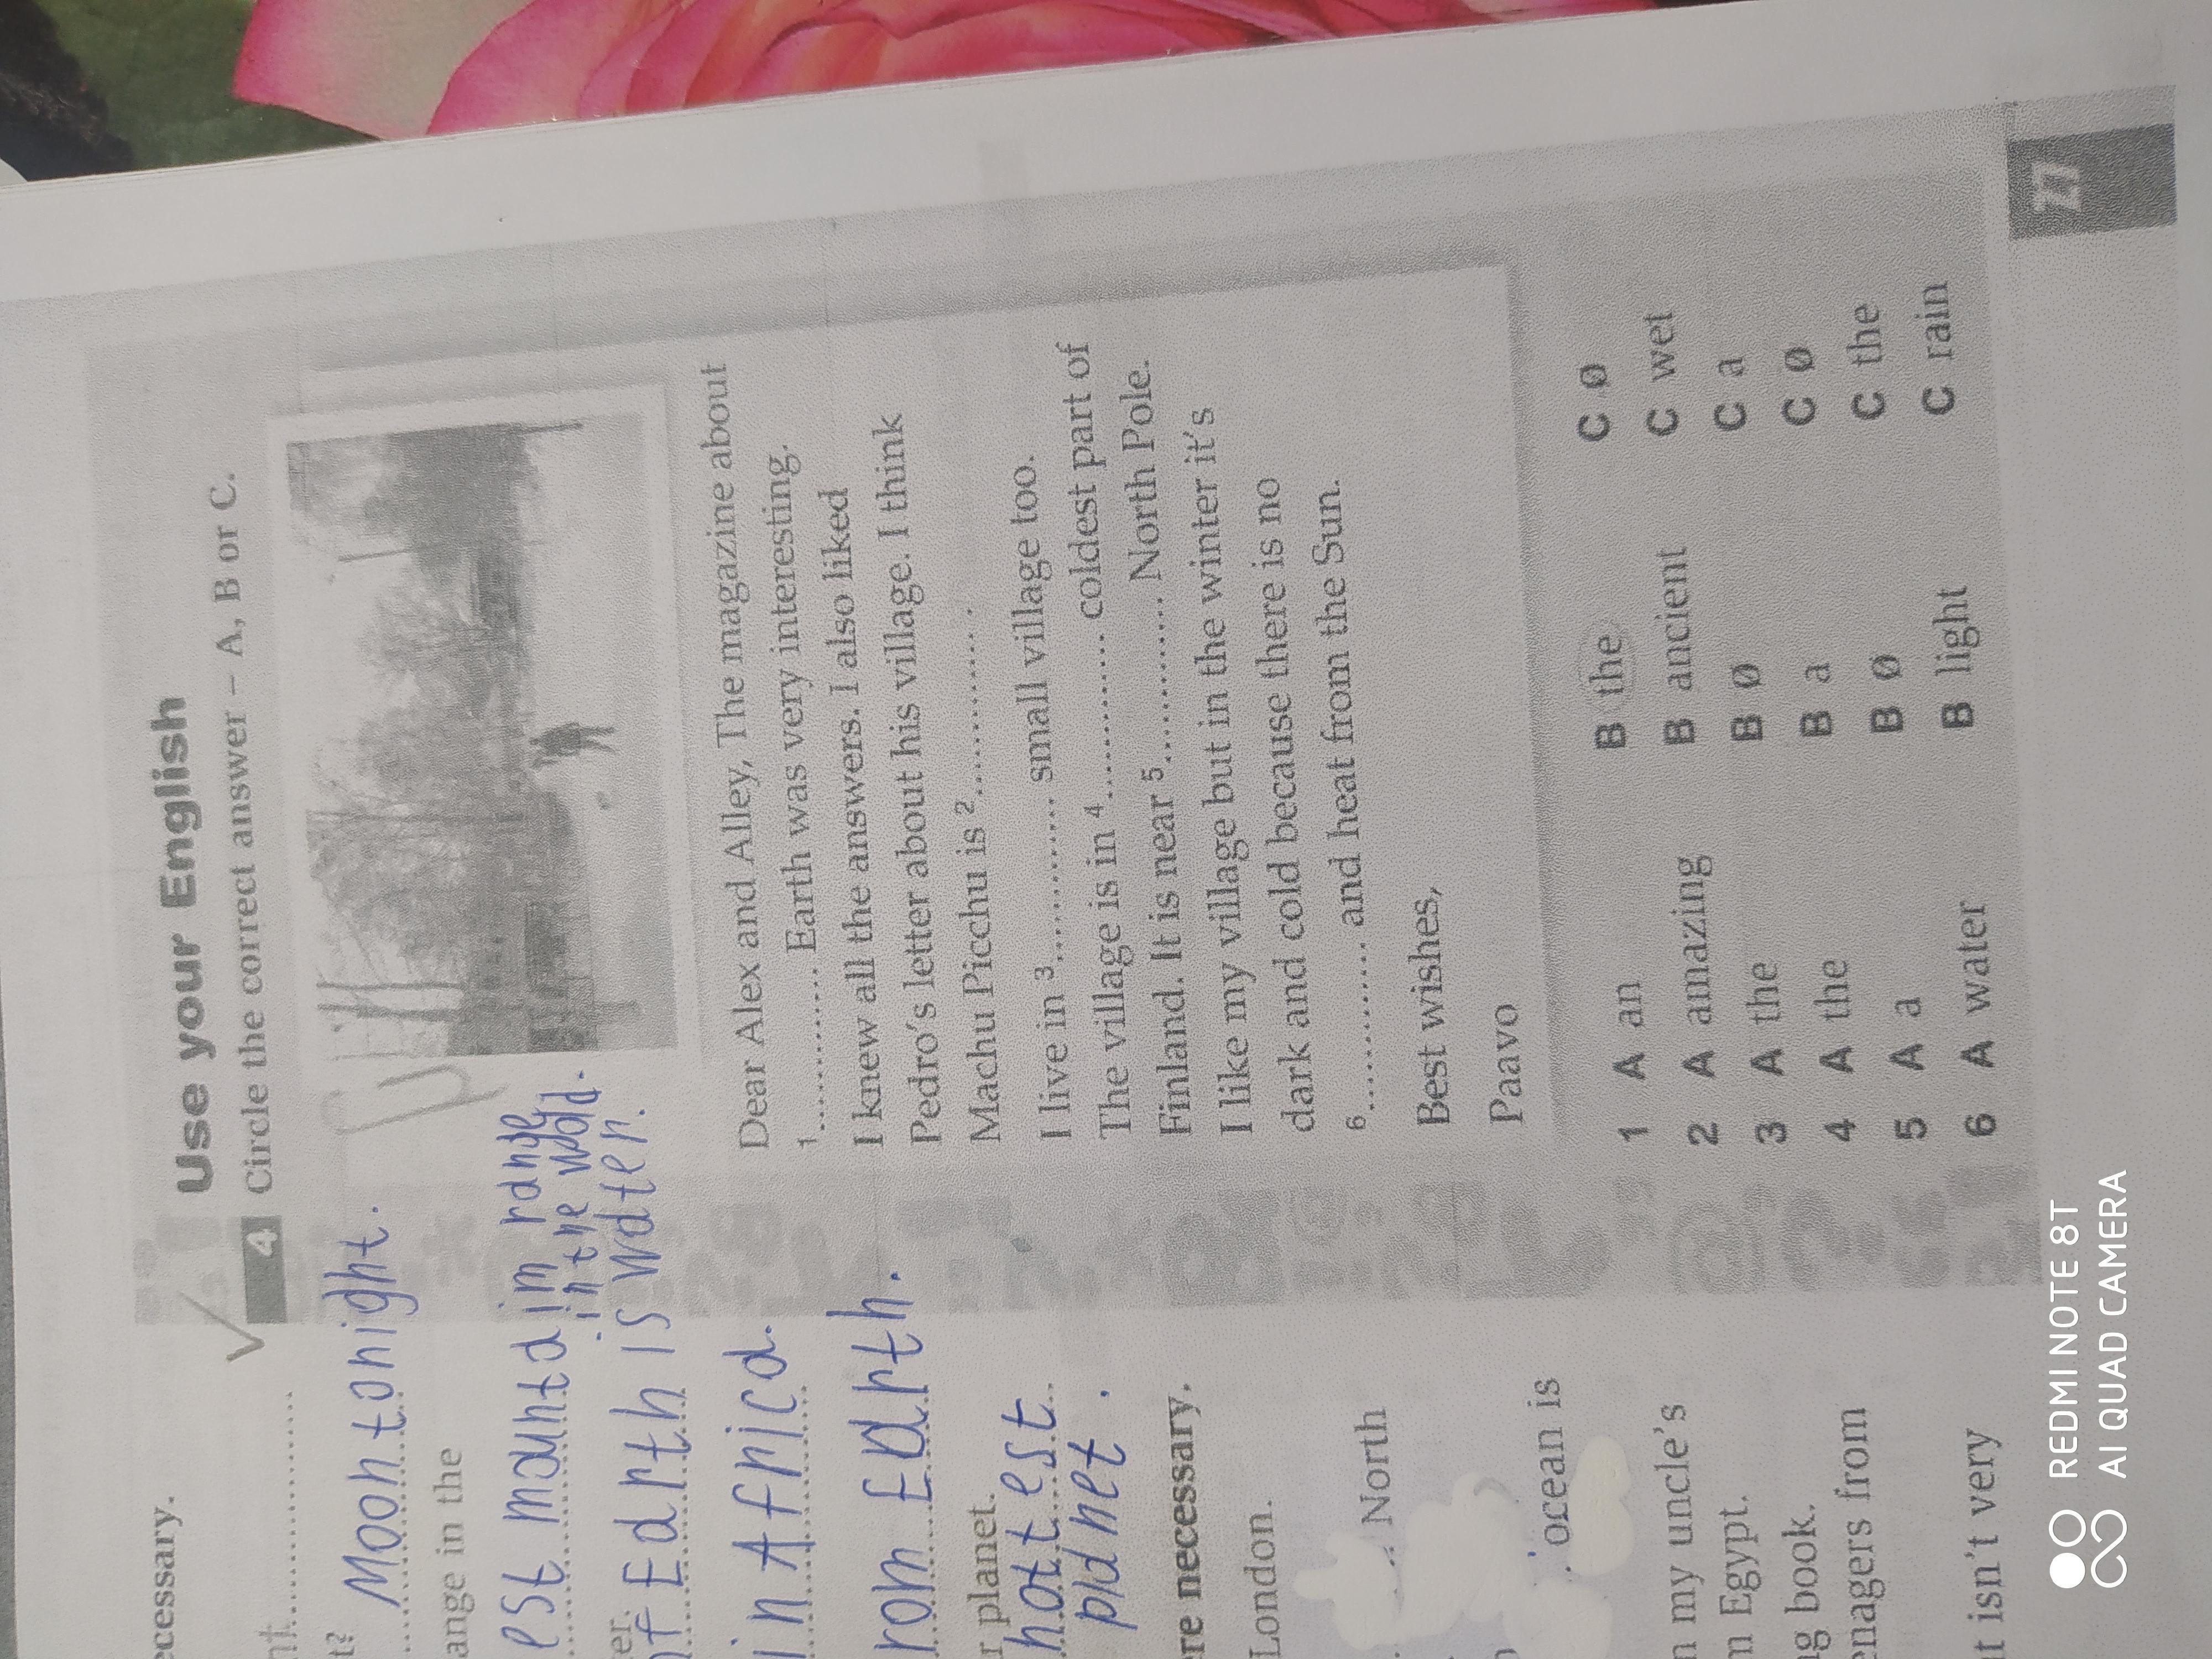 ecessary.
nt
t?
Moon tonight.
ange in the
est mountaim range
in the wold.
er.
of Earth is water.
in Africa.
rom Earth.
r planet.
hottest
planet.
re necessary.
London.
North
ocean is
n my uncle's
n Egypt.
g book.
enagers from
t isn't very
Use your English
4 Circle the correct answer – A, B or C.
Dear Alex and Alley, The magazine about
1............ Earth was very interesting.
I knew all the answers. I also liked
Pedro's letter about his village. I think
Machu Picchu is 2............ .
I live in 3............ small village too.
The village is in 4............ coldest part of
Finland. It is near 5............ North Pole.
I like my village but in the winter it's
dark and cold because there is no
6............ and heat from the Sun.
Best wishes,
Paavo
1 A an B the C ø
2 A amazing B ancient C wet
3 A the B ø C a
4 A the B a C ø
5 A a B ø C the
6 A water B light C rain
27
REDMI NOTE 8T
AI QUAD CAMERA